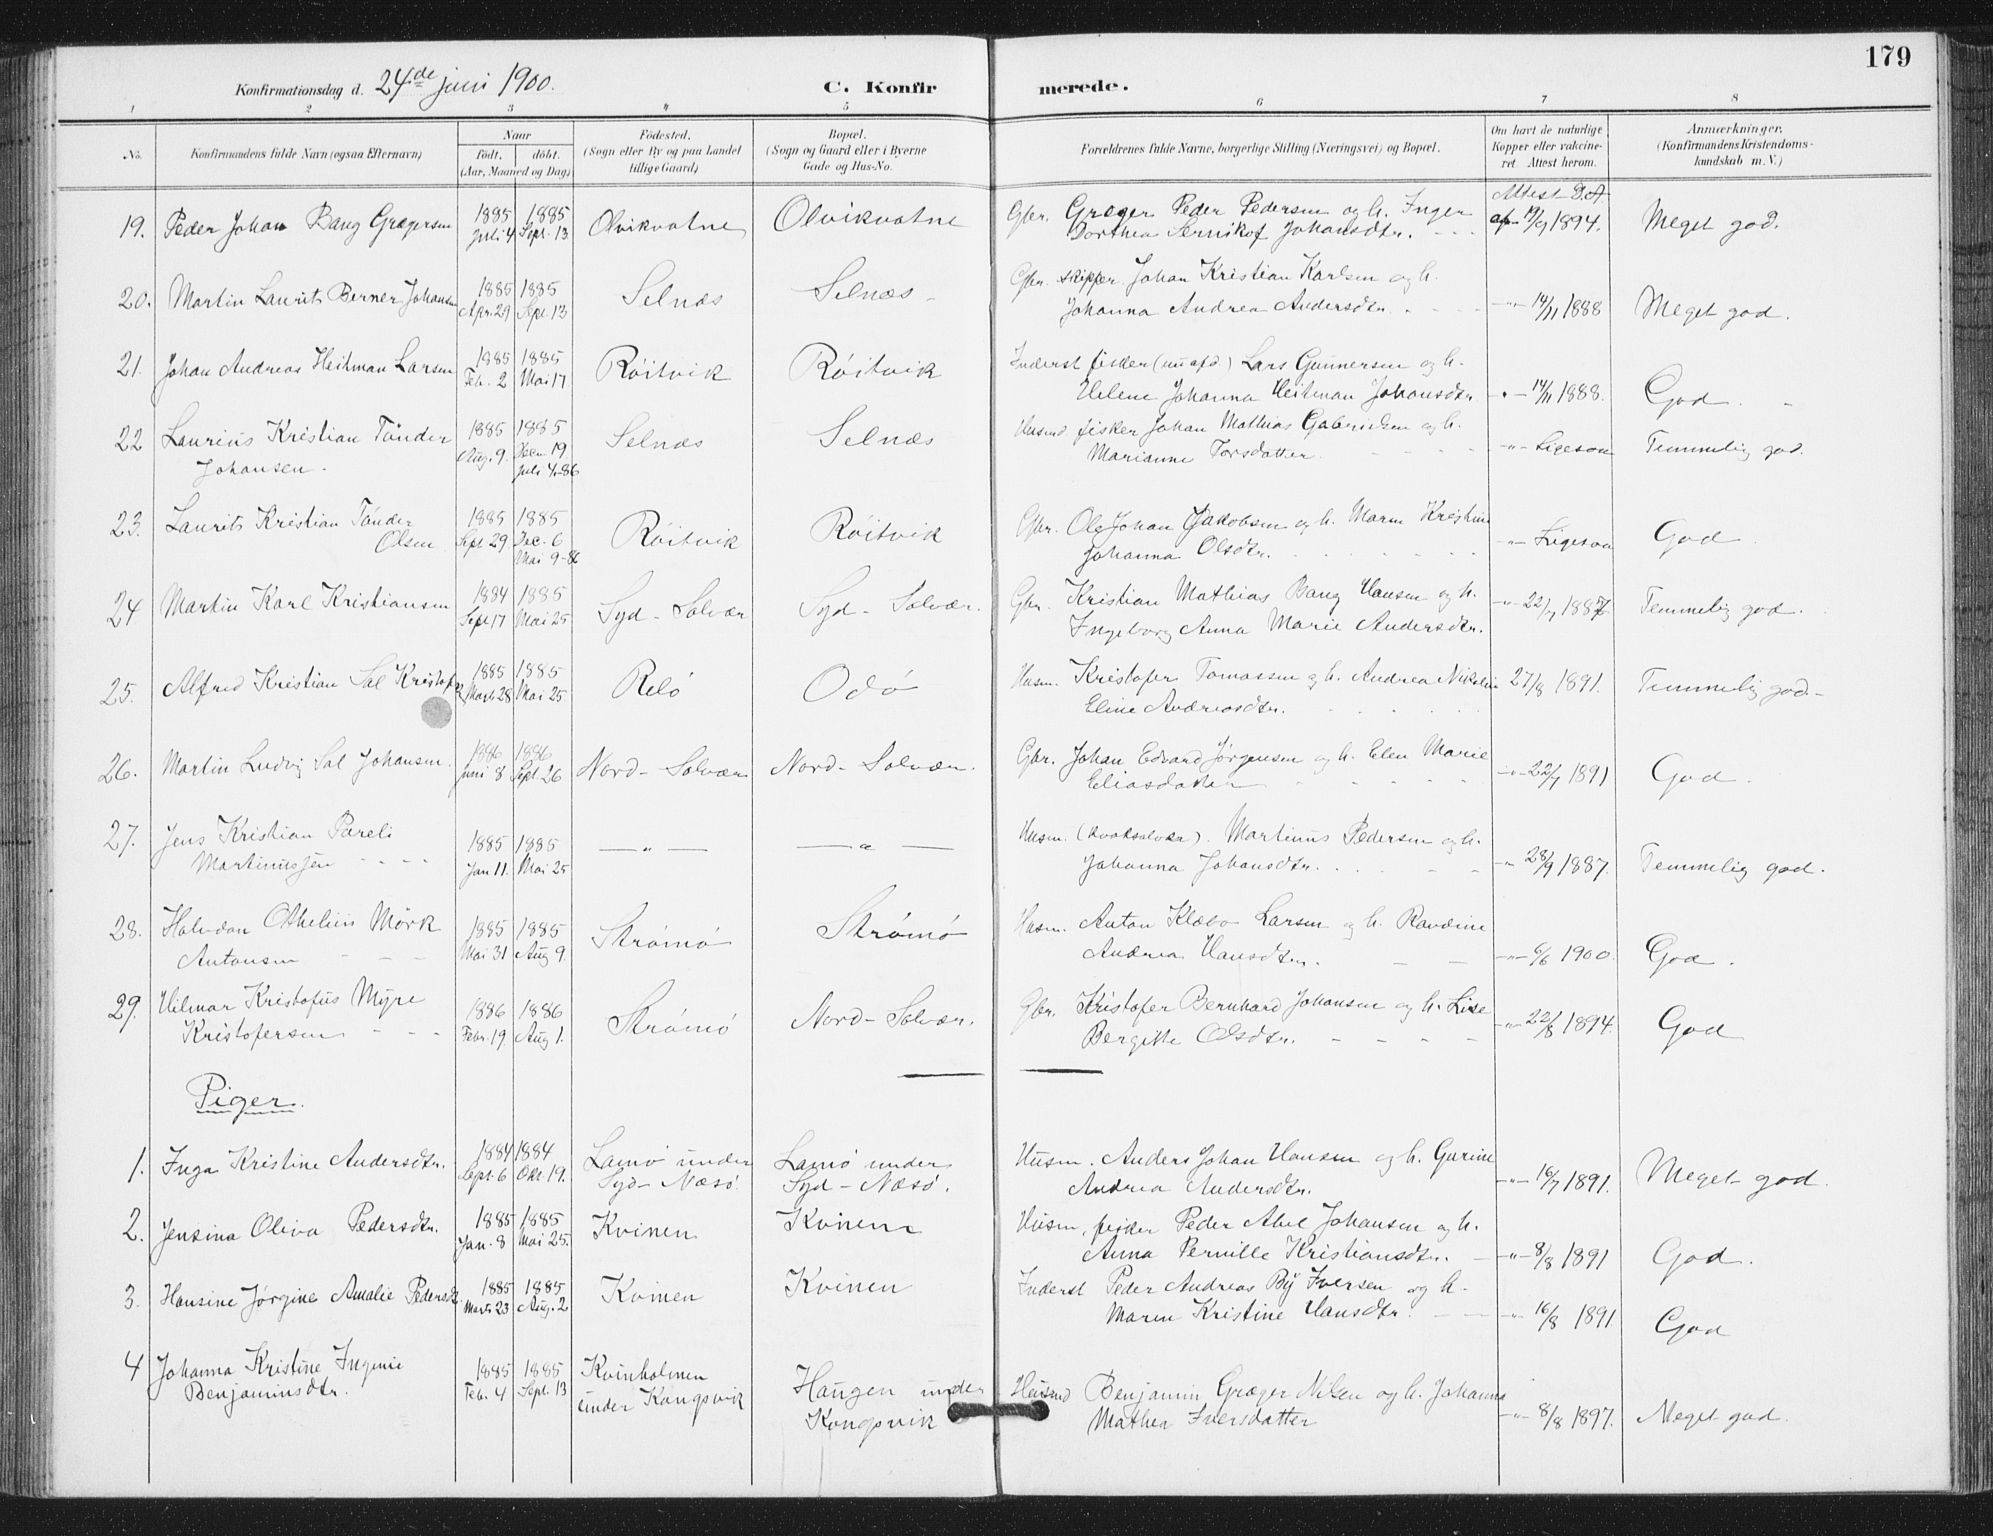 179
Konfirmationsdag d. 24de juni 1900. C. Konfir merede.
1 2 3 4 5 6 7 8
No. Konfirmandens fulde Navn (ogsaa Efternavn) Naar født. døbt. (Aar, Maaned og Dag) Fødested. (Sogn eller By og paa Landet tillige Gaard) Bopæl. (Sogn og Gaard eller i Byerne Gade og Hus-No. Forældrenes fulde Navne, borgerlige Stilling (Næringsvei) og Bopæl. Om havt de naturlige Kopper eller vakcineret. Attest herom. Anmærkninger. (Konfirmandens Kristendomskundskab m. V.)
19. Peder Johan Bang Grægersen 1885 Juli 4 1885 Sept. 13 Olvikvatne Olvikvatne Gbr. Græger Peder Pedersen og h. Inger Attest D.A.
Dorthea Johansdtr. af 19/9 1894. Meget god.
20. Martin Laurits Berner Johansen 1885 Apr. 29 1885 Sept. 13 Selnæs Selnæs Gbr. skipper Johan Kristian Karlsen og h.
Johanna Andrea Andersdtr. -"- 14/11 1888 Meget god.
21. Johan Andreas Heitman Larsen 1885 Feb. 2 1885 Mai 17 Röitvik Röitvik Inderst fisker (nu afd.) Lars Gunnersen og h.
Helene Johanna Heitman Johansdtr. 14/11 1888. God.
22 Laurius Kristian Tönder 1885 Aug. 9. 1885 Decn 19 Selnæs Selnæs Husmd. fisker Johan Mathias Gabrielsen og h.
Johansen. Juli 4-86 Marianne Torsdatter -"- Ligesaa Temmelig god.
23. Laurits Kristian Tönder 1885 Sept 29 1885 Dec. 6 Röitvik Röitvik Gbr. Ole Johan Jakobsen og h. Maren Kristine
Olsen Mai 9-86 Johanna Olsdtr. -"- Ligesaa God
24 Martin Karl Kristiansen 1884 Sept 17 1885 Mai 25 Syd-Solvær Syd-Solvær. Gbr. Kristian Mathias Bang Hansen og h.
Ingeborg Anna Marie Andersdtr. -"- 22/7 1887 Temmelig god.
25. Alfred Kristian Sal Kristofer 1885 Marts 28 1885 Mai 25 Relö Odö Husm. Kristofer Tomassen og h. Andrea Nikoline 27/8 1891. Temmelig god.-
Eline Andreasdtr.
26. Martin Ludvig Sal Johansen. 1886 Juni 8 1886 Sept. 26 Nord-Solvær Nord-Solvær. Gbr. Johan Edvard Jørgensen og h. Elen Marie
Eliasdatter -"- 22/7 1891 God.
27. Jens Kristian Pareli 1885 Jan 11. 1885 Mai 25 — " — — " — Husm. (kvaksalver). Martinus Pedersen og h.
Martinussen Johanna Johansdtr. -"- 28/9 1887. Temmelig god.
28. Halvdan Othelius Mörk 1885 Mai 31 1885 Aug 9. Strömö Strömö Husm. Anton Klæbo Larsen og h. Ravdine
Antonsen Andrea Hansdtr. -"- 6/6 1900. God.
29. Hilmar Kristofus Myre 1886 Febr. 19 1886 Aug 1. Strömö Nord-Solvær. Gbr. Kristofer Bernhard Johansen og h. Lise
Kristofersen Bergitte Olsdtr. -"- 22/8 1894. God
Piger.
1. Inga Kristine Andersdtr. 1884 Sept. 6 1884 Okt. 19. Lamö under Lamö under Husm. Anders Johan Hansen og h. Gurine
Syd-Næsö. Syd-Næsö. Andrea Andersdtr. -"- 16/7 1891. Meget god.
2. Jensina Oliva Pedersdtr. 1885 Jan. 8 1885 Mai 25. Kvinen Kvinen Husm. fisker Peder Abel Johansen og h.
Anna Pernille Kristiansdtr. -"- 8/8 1891 God.
3. Hansine Jörgine Amalie Pedersdt. 1885 Marts 23 1885 Aug. 2 Kvinen Kvinen Inderst Peder Andreas By Iversen og h.
Maren Kristine Hansdtr. -"- 16/8 1891. God
4 Johanna Kristine Ingenie 1885 Feb. 4 1885 Sept. 13 Kvinholmen Haugen under Husmd Benjamin Græger Nilsen og h. Johanna
Benjaminsdtr. under Kongsvik Kongsvik Mathea Iversdatter -"- 8/8 1897. Meget god.